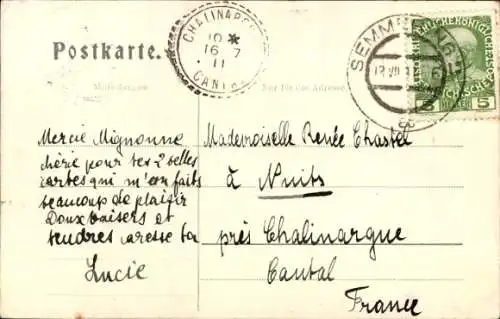 Postkarte.
CHALINARGUE
10 *
16 7
11
CANTAL
SEMMERING
Mitteilungen
Nur für die Adresse
5
Mercie Mignonne
chérie pour tes 2 belles
cartes qui m'en faits
beaucoup de plaisir
Doux baisers et
tendres aresse ta
Lucie
Mademoiselle Renée Chastel
à Nuits
près Chalinargue
Cantal
France